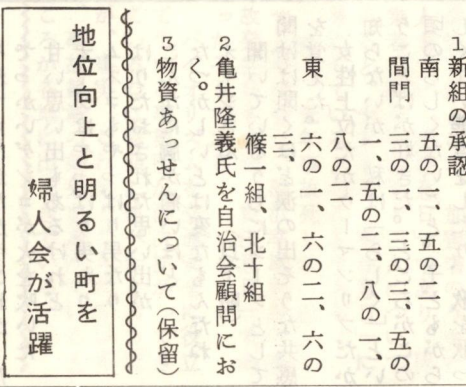 1 新組の承認
南 五の一、五の二
間門 三の一、三の三、五の
一、五の二、八の一、
八の二
東 六の一、六の二、六の
三、
篠一組、北十組
2 亀井隆義氏を自治会顧問にお
く。
3 物資あっせんについて(保留)
地位向上と明るい町を
婦人会が活躍